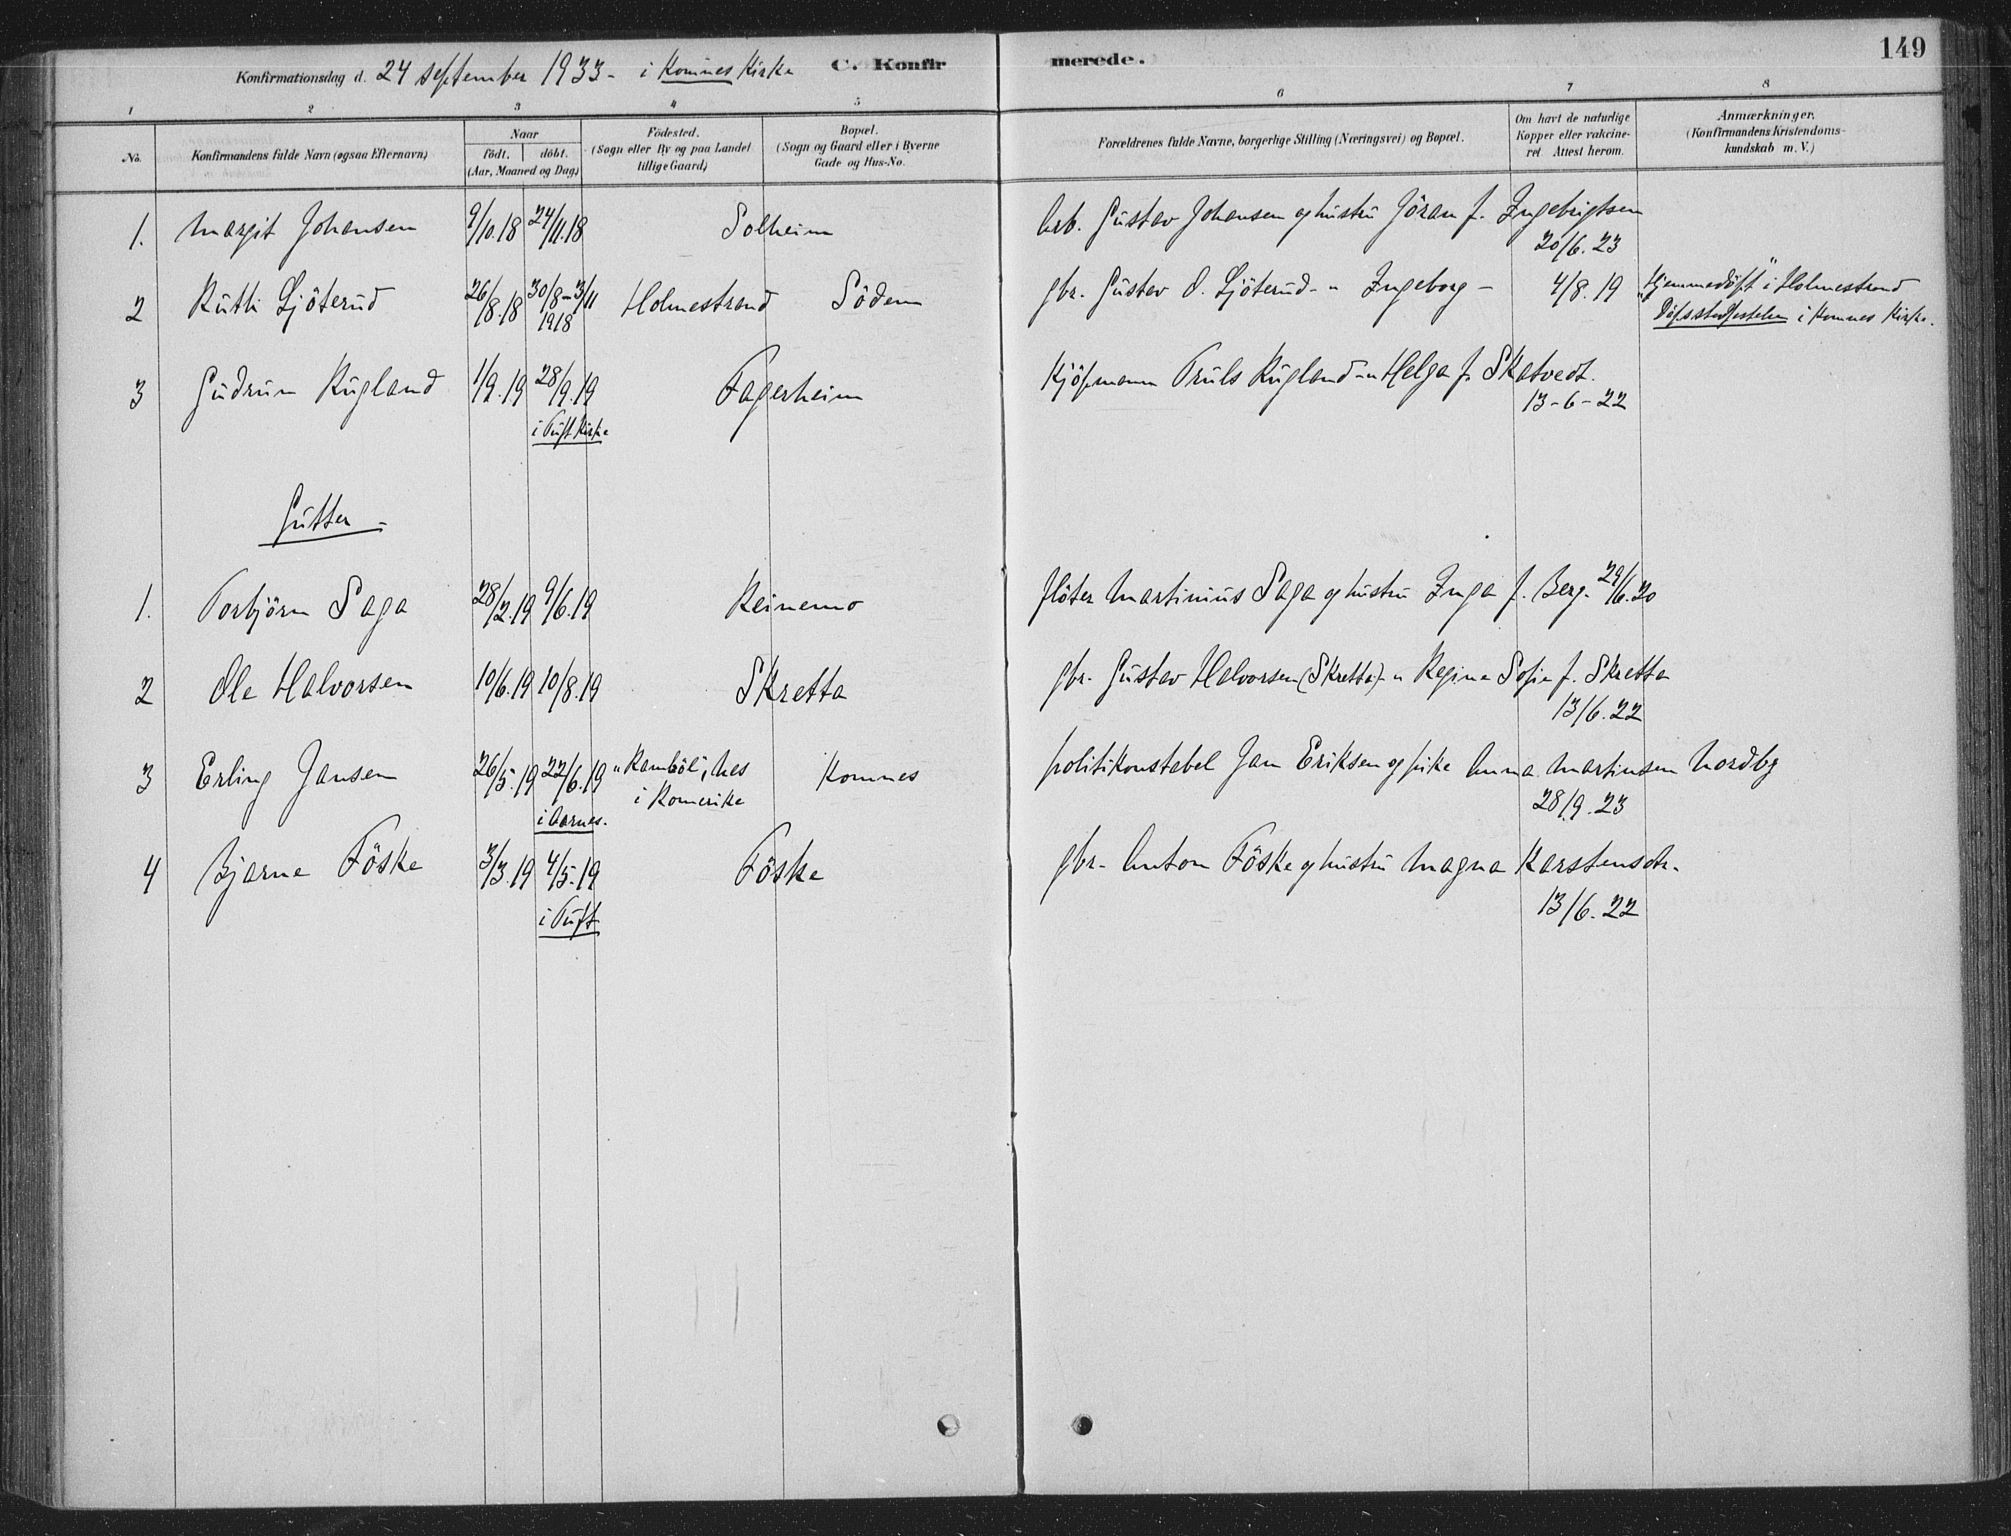 149
Konfirmationsdag d. 24 september 1933 - i Komnes Kirke C. Konfirmerede.
1 2 3 4 5 6 7 8
No.
Konfirmandens fulde Navn (ogsaa Efternavn)
Naar
födt. döbt.
(Aar, Maaned og Dag)
Födested.
(Sogn eller By og paa Landet
tillige Gaard)
Bopæl.
(Sogn og Gaard eller i Byerne
Gade og Hus-No.
Forældrenes fulde Navne, borgerlige Stilling (Næringsvei) og Bopæl.
Om havt de naturlige
Kopper eller vakcine-
ret Attest herom.
Anmærkninger.
(Konfirmandens Kristendoms-
kundskab m. V.)
1. Margit Johansen 9/10.18 24/11.18 Solheim Arb. Gustav Johansen og hustru Jöran f. Ingebrigtsen
20/6.23
2 Ruth Ljöterud 26/8.18 30/8 - 3/11 1918 Holmestrand Södem gbr. Gustav O. Ljöterud - " Ingeborg - 4/8.19 "Hjemmedöpt" i Holmestrand
Dåpsstadfestelsen i Komnes Kirke.
3 Gudrun Rugland 1/9.19 28/9.19 Fagerheim Kjöpmann Truls Rugland - " Helga f. Skatvedt.
i Tuft Kirke 13-6-22
Gutter -
1. Torbjörn Saga 28/2.19 9/6.19 Reinemo flöter Martinius Saga og hustru Inga f. Berg. 29/6.20
2 Ole Halvorsen 10/6.19 10/8.19 Skretta gbr. Gustav Halvorsen (Skretta) - " Regine Sofie f. Skretta
13/6.22
3 Erling Jansen 26/5.19 22/6.19 "Ramböl", Nes Komnes politikonstabel Jan Eriksen og pike Anna Martinsen Nordby
i Aarnes. i Romerike 28/9.23
4 Bjarne Föske 3/3.19 4/5.19 Föske gbr. Anton Föske og hustru Magna Karstensdtr.
i Tuft 13/6.22